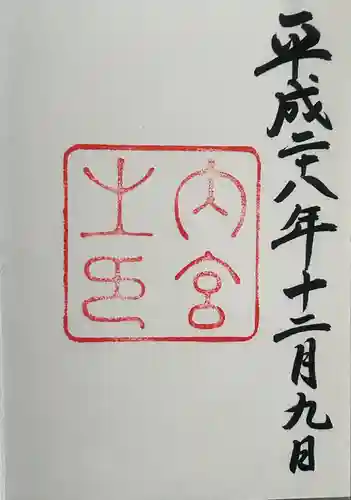 平成二十八年十二月九日
内宮
之印